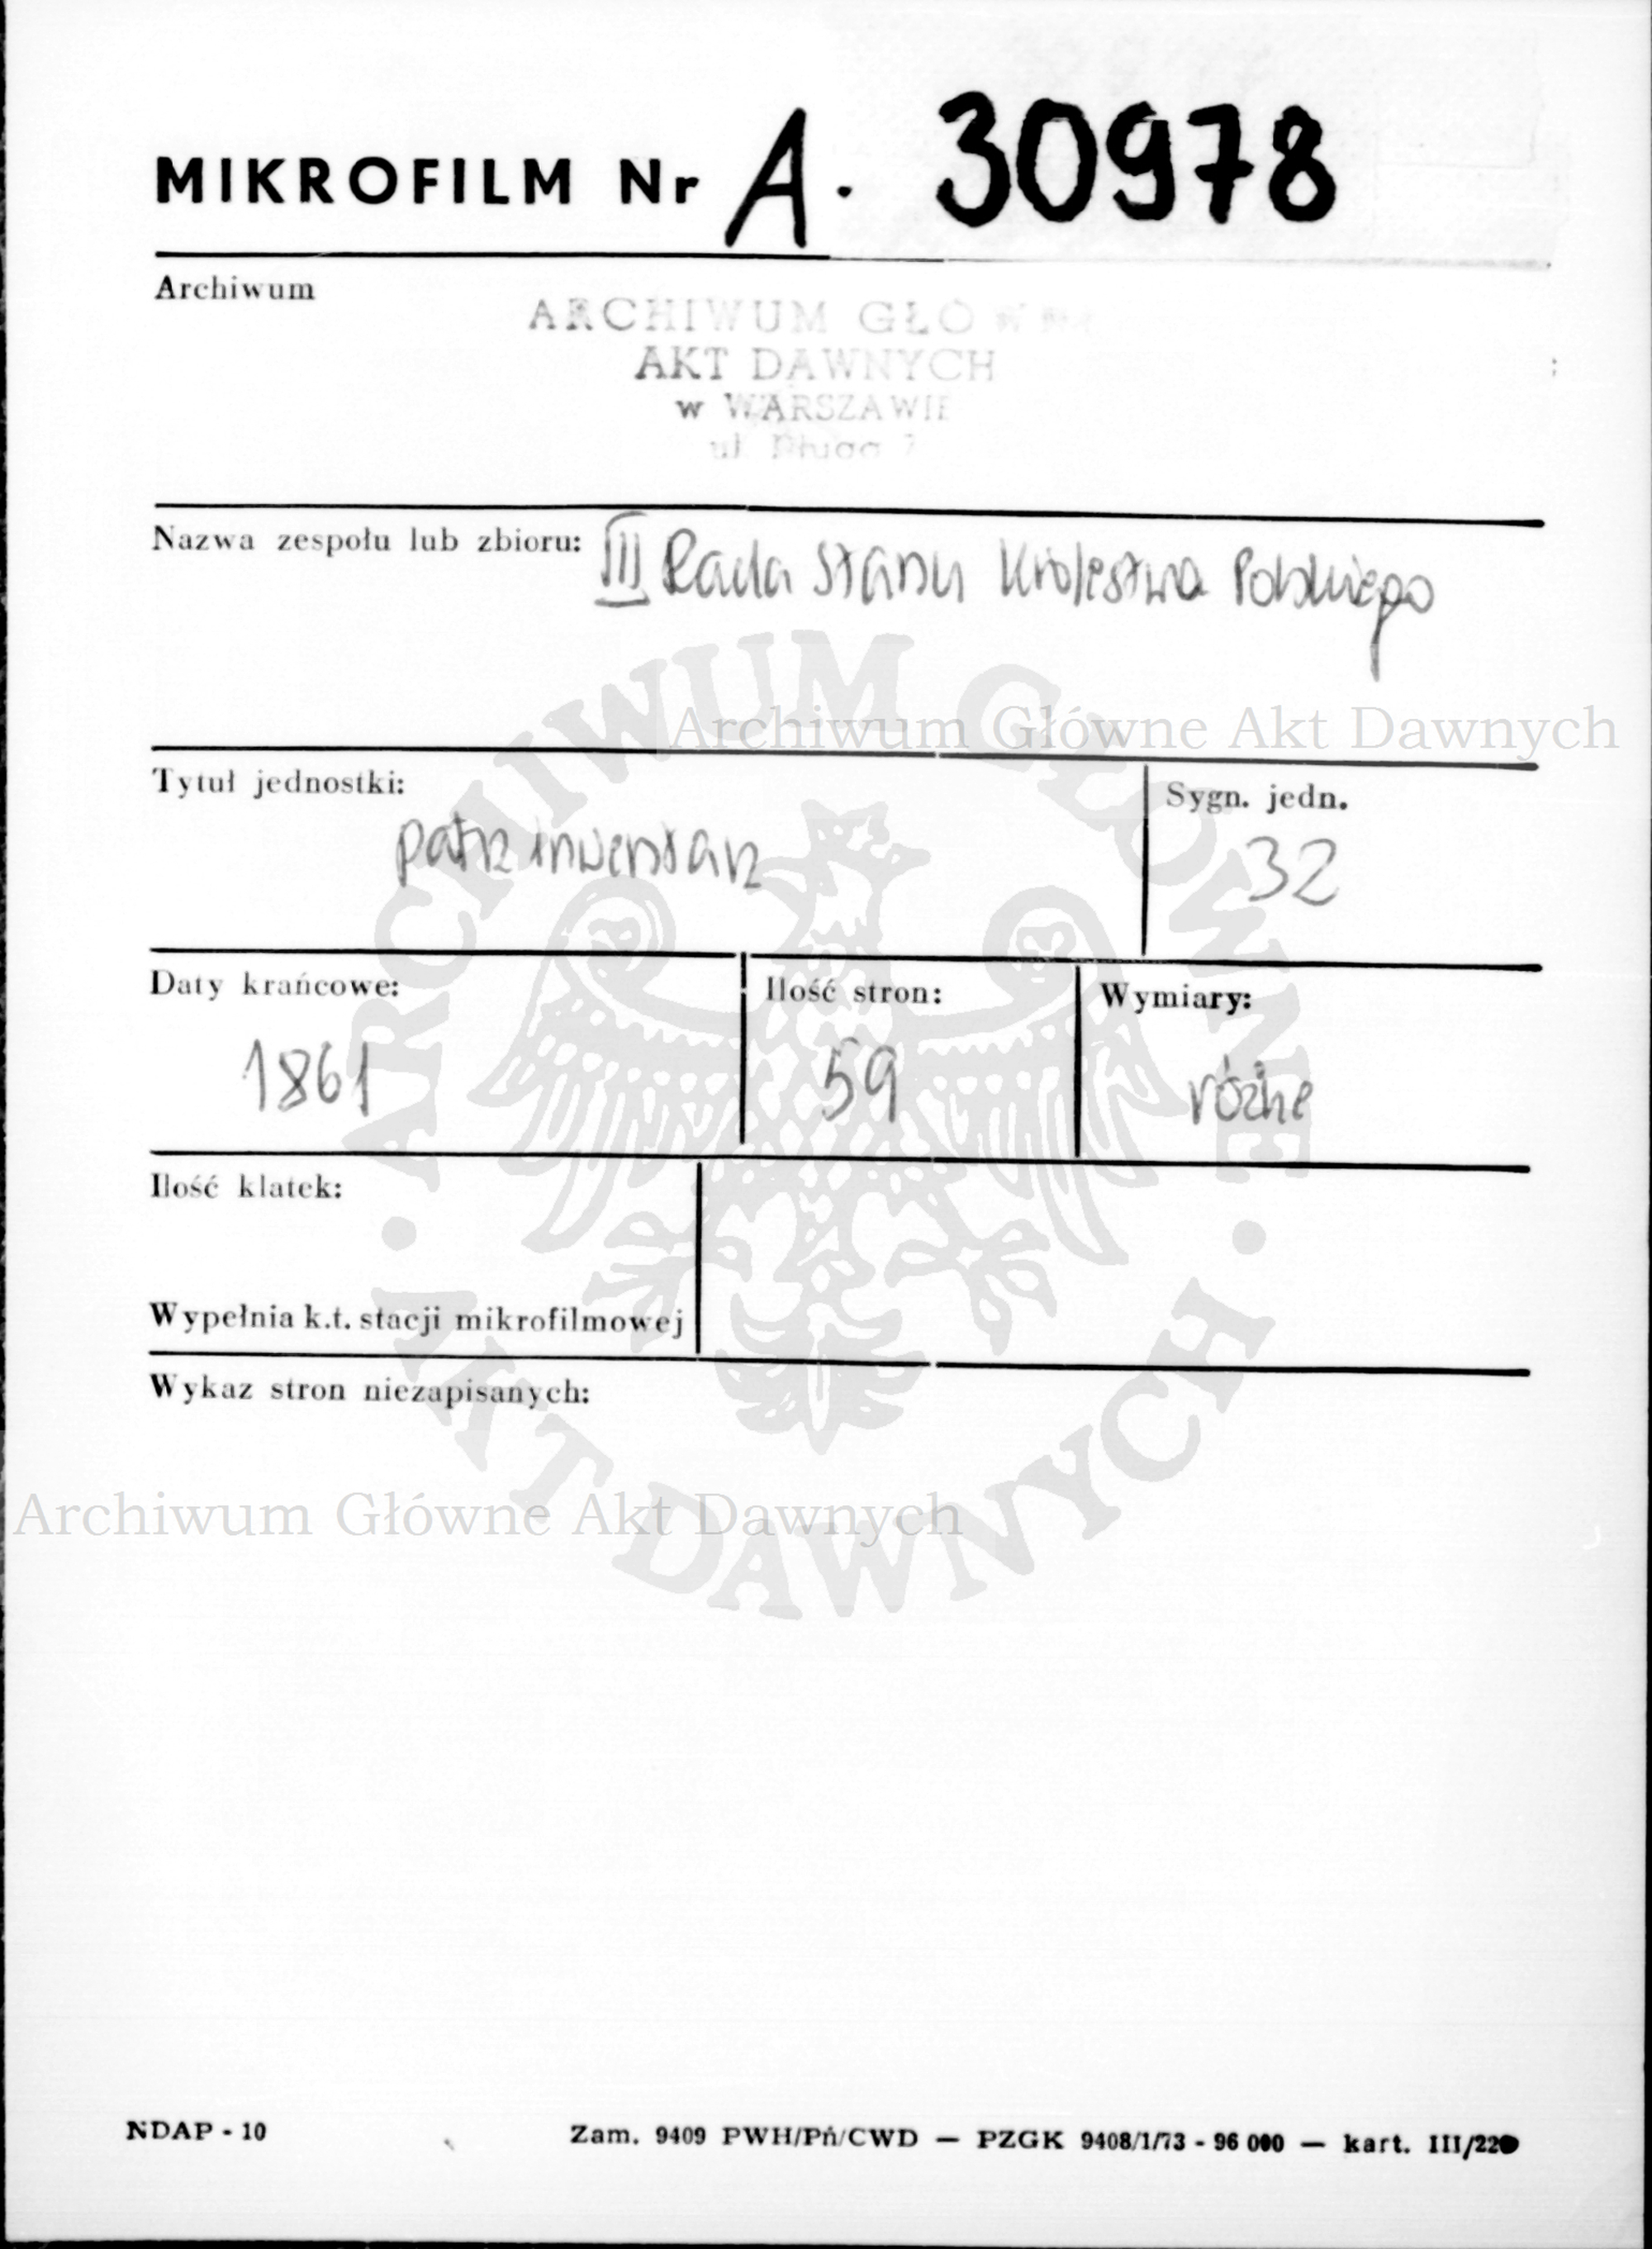 MIKROFILM Nr A. 30978
Archiwum
ARCHIWUM GŁÓWNE
AKT DAWNYCH
w WARSZAWIE
ul. Długa 7
Nazwa zespołu lub zbioru: III Rada Stanu Królestwa Polskiego
Archiwum Główne Akt Dawnych
Tytuł jednostki:
patrz inwentarz
Sygn. jedn.
32
Daty krańcowe:
1861
Ilość stron:
59
Wymiary:
różne
Ilość klatek:
Wypełnia k.t. stacji mikrofilmowej
Wykaz stron niezapisanych:
Archiwum Główne Akt Dawnych
ARCHIWUM GŁÓWNE
AKT DAWNYCH
NDAP - 10
Zam. 9409 PWH/Pń/CWD — PZGK 9408/1/73 - 96 000 — kart. III/220